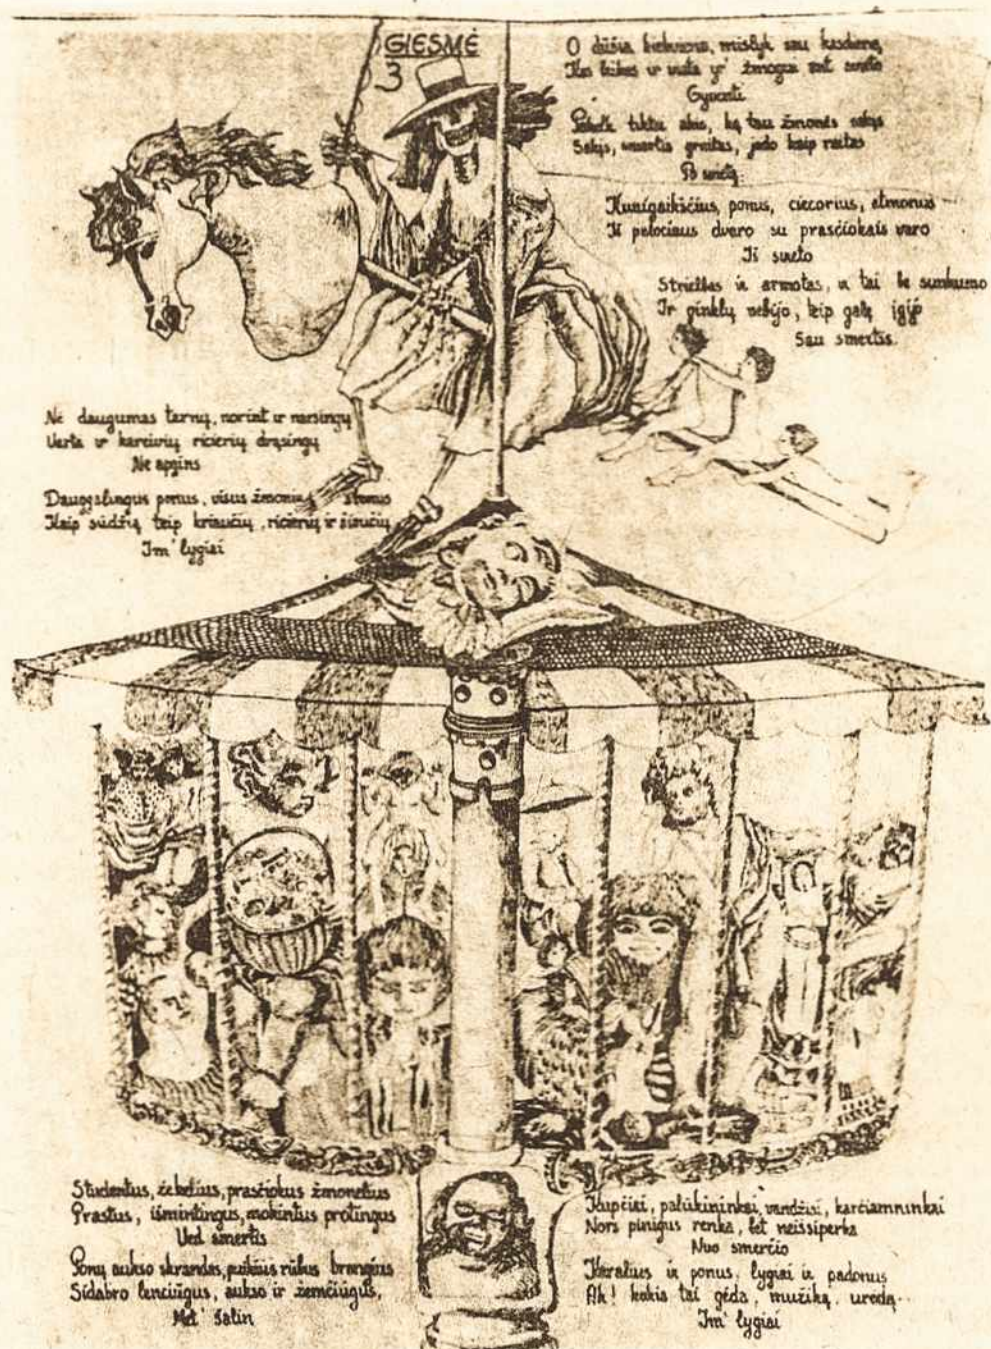 GIESMĖ
3
O dūšia kiekviena, mislyk sau kasdieną
Kas būkas ir vieta yr' žmogus ant svieto
Gyventi
Pakelk tiktai akis, ką tau žmonės sakys
Sakys, smertis greitas, jodo kaip raitas
Po svietą
Kunigaikščius, ponus, ciecorius, etmonus
Iš palociaus dvaro su prasčiokais varo
Iš svieto
Strielbas ir armotas, ir tai be sunkumo
Ir ginklų nebijo, teip galę įgijo
Sau smertis.
Ne daugumas tarnų, norint ir narsingų
Varta ir kareivių ricierių drąsingų
Ne apgins
Dauggalingus ponus, visus žmonių stonus
Kaip sūdžią teip kriaučių, ricierių ir šiaučių
Im' lygiai
Studentus, žekelius, prasčiokus žmonelius
Prastus, išmintingus, mokintus protingus
Ved smertis
Ponų aukso skrandas, puikius rūbus brangius
Sidabro lenciūgus, aukso ir žemčiūgus,
Met' šalin
Kupčiai, paliūkininkai, vandžiai, karčiamninkai
Nors pinigus renka, bet neišsiperka
Nuo smerčio
Karalius ir ponus, lygiai ir padonus
Ak! kokia tai gėda, muziką, uroda
Im' lygiai